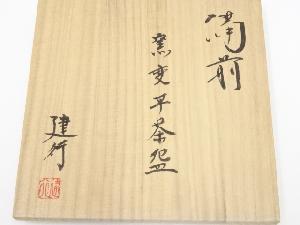 備前
窯変平茶盌
建行